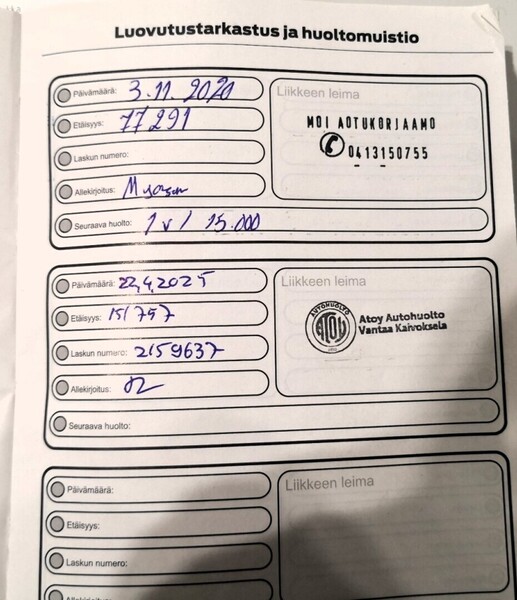 Luovutustarkastus ja huoltomuistio
Päivämäärä: 3.11.2020
Liikkeen leima
Etäisyys: 77291
MOI AOTUKORJAAMO
0413150755
Laskun numero:
Allekirjoitus:
Seuraava huolto: 1 v / 15.000
Päivämäärä: 22.4.2025
Liikkeen leima
Etäisyys: 151757
AUTOHUOLTO
ATOY
Atoy Autohuolto
Vantaa Kaivoksela
Laskun numero: 2159637
Allekirjoitus:
Seuraava huolto:
Päivämäärä:
Liikkeen leima
Etäisyys:
Laskun numero:
Allekirjoitus: